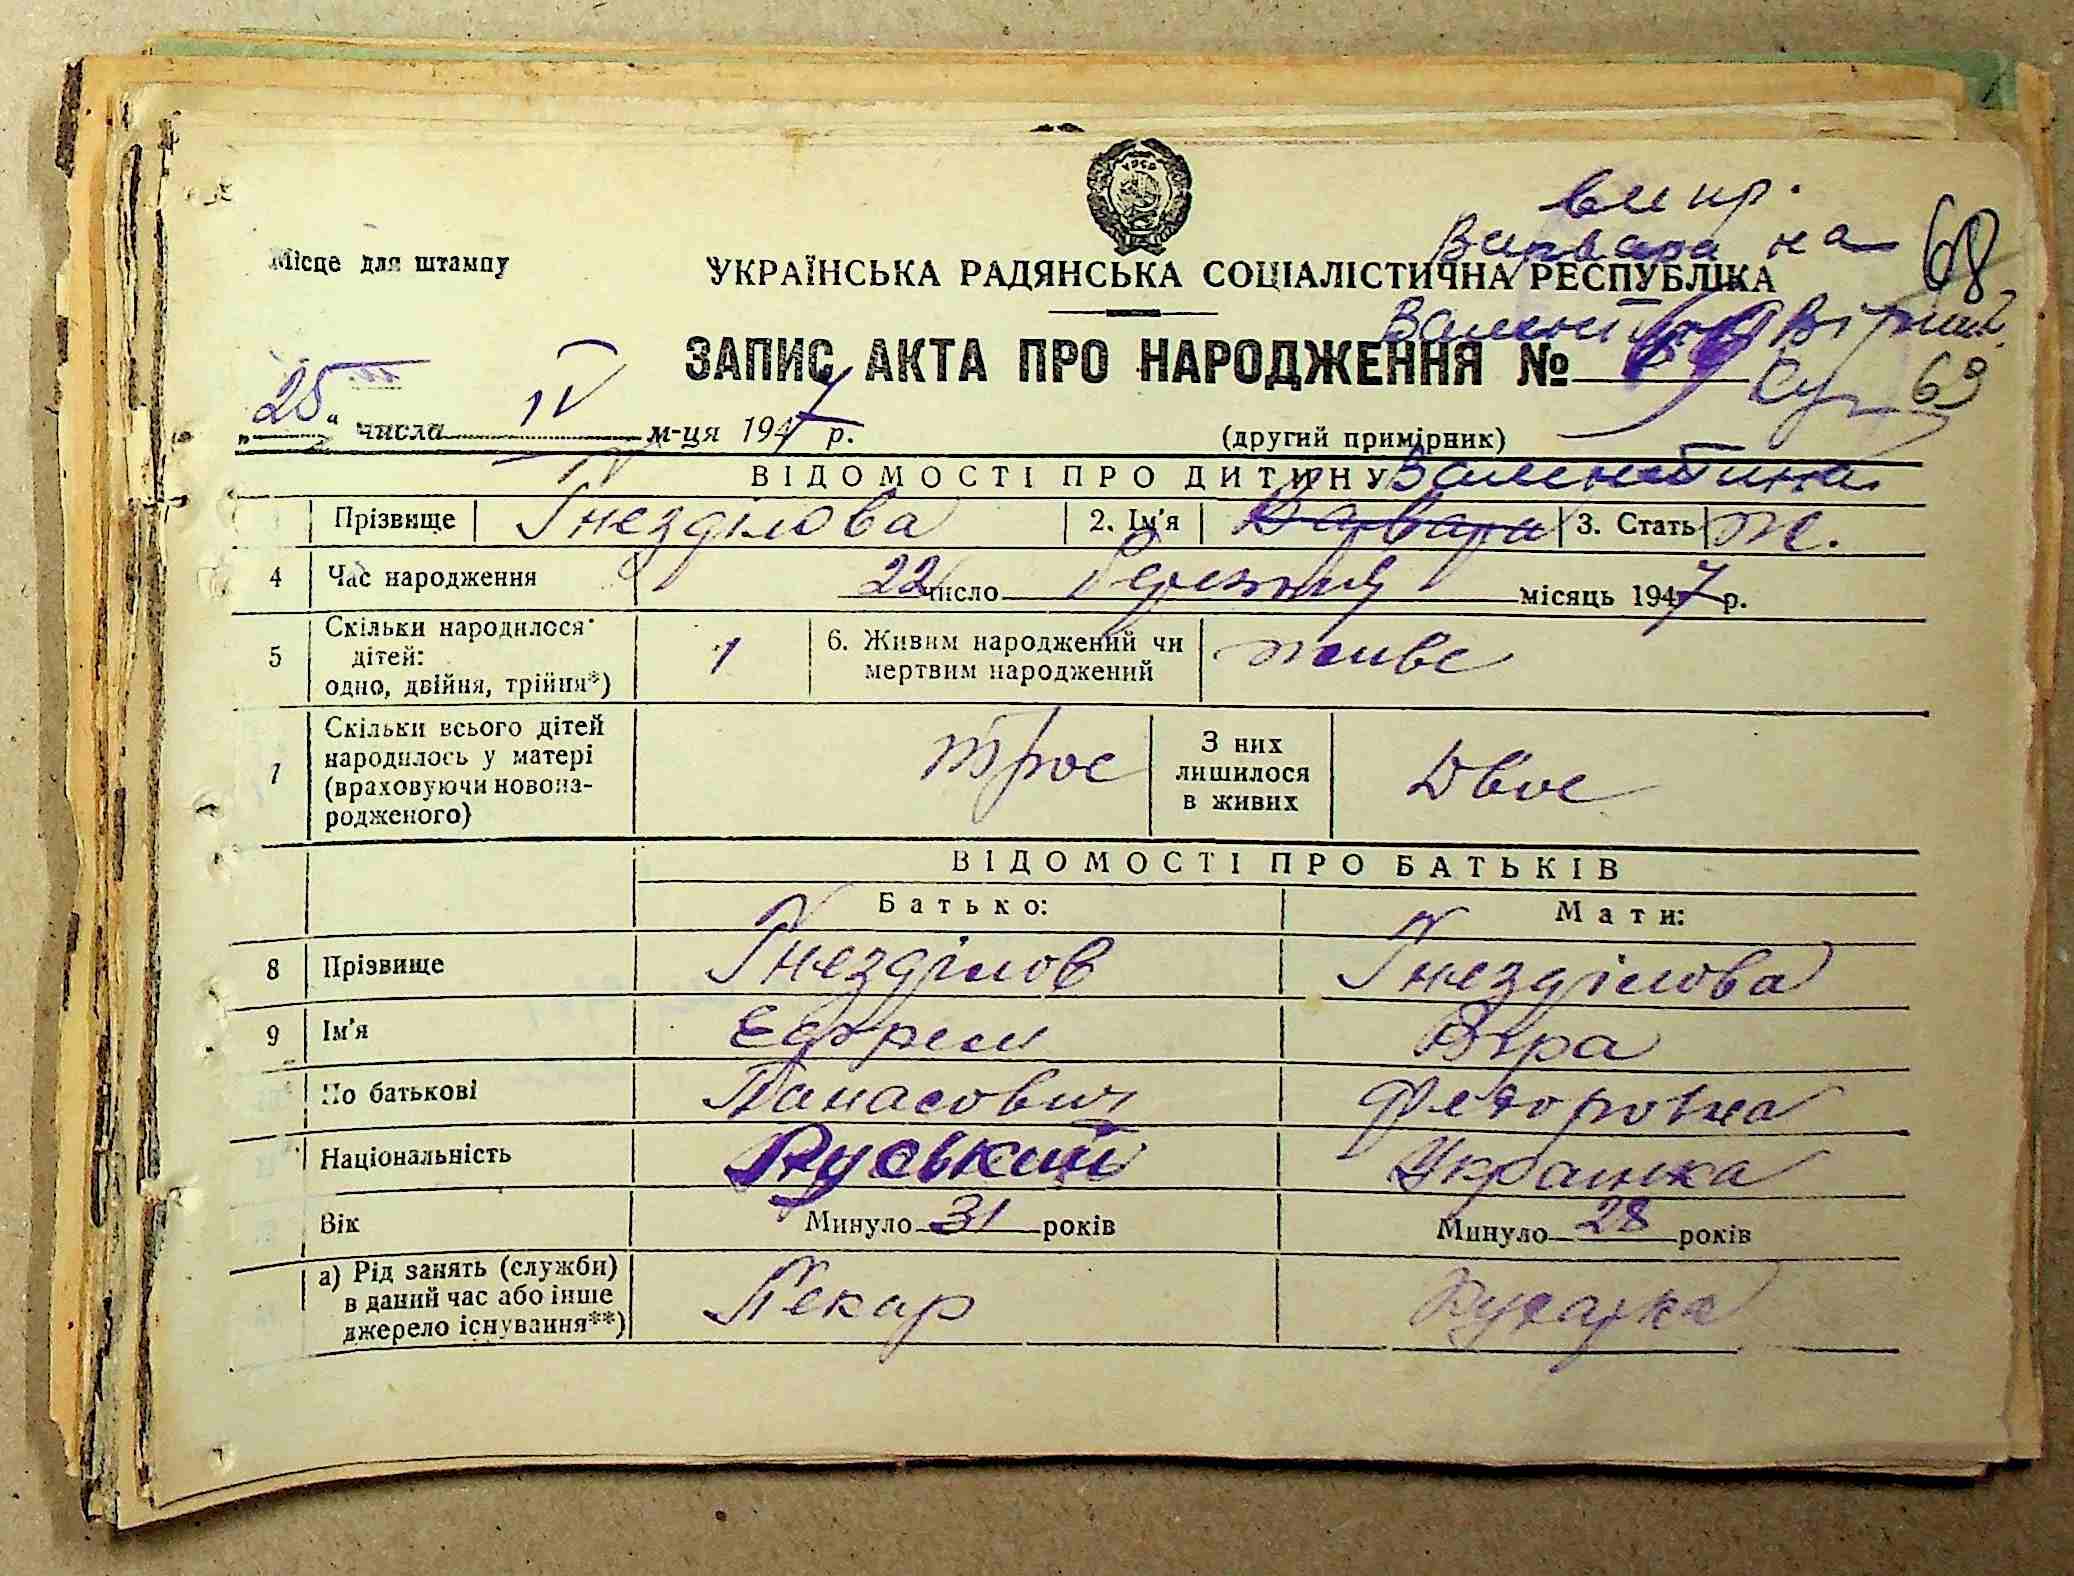 випр.
Варвара на
68
Місце для штампу
УКРАЇНСЬКА РАДЯНСЬКА СОЦІАЛІСТИЧНА РЕСПУБЛІКА
Валентина Вірити
ЗАПИС АКТА ПРО НАРОДЖЕННЯ №
69
„25“ числа IV м-ця 1947 р.
(другий примірник)
IV
ВІДОМОСТІ ПРО ДИТИНУ Валентина
Прізвище Гнезділова 2. Ім'я Варвара 3. Стать Ж.
4 Час народження 22 число березня місяць 1947 р.
5 Скільки народилося дітей: одно, двійня, трійня*) 1 6. Живим народжений чи мертвим народжений живе
7 Скільки всього дітей народилось у матері (враховуючи новонародженого) Троє З них лишилося в живих Двоє
ВІДОМОСТІ ПРО БАТЬКІВ
Батько: Мати:
8 Прізвище Гнезділов Гнезділова
9 Ім'я Єфрем Віра
По батькові Панасович Федоровна
Національність Руський Українка
Вік Минуло 31 років Минуло 28 років
а) Рід занять (служби) в даний час або інше джерело існування**) Пекар Кухарка